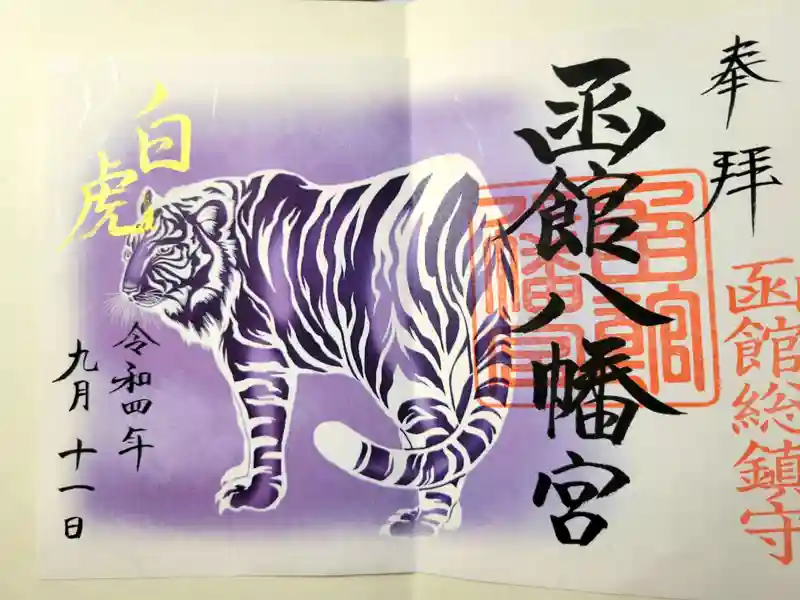 奉拝
函館総鎮守
函館八幡宮
白虎
令和四年
九月十一日